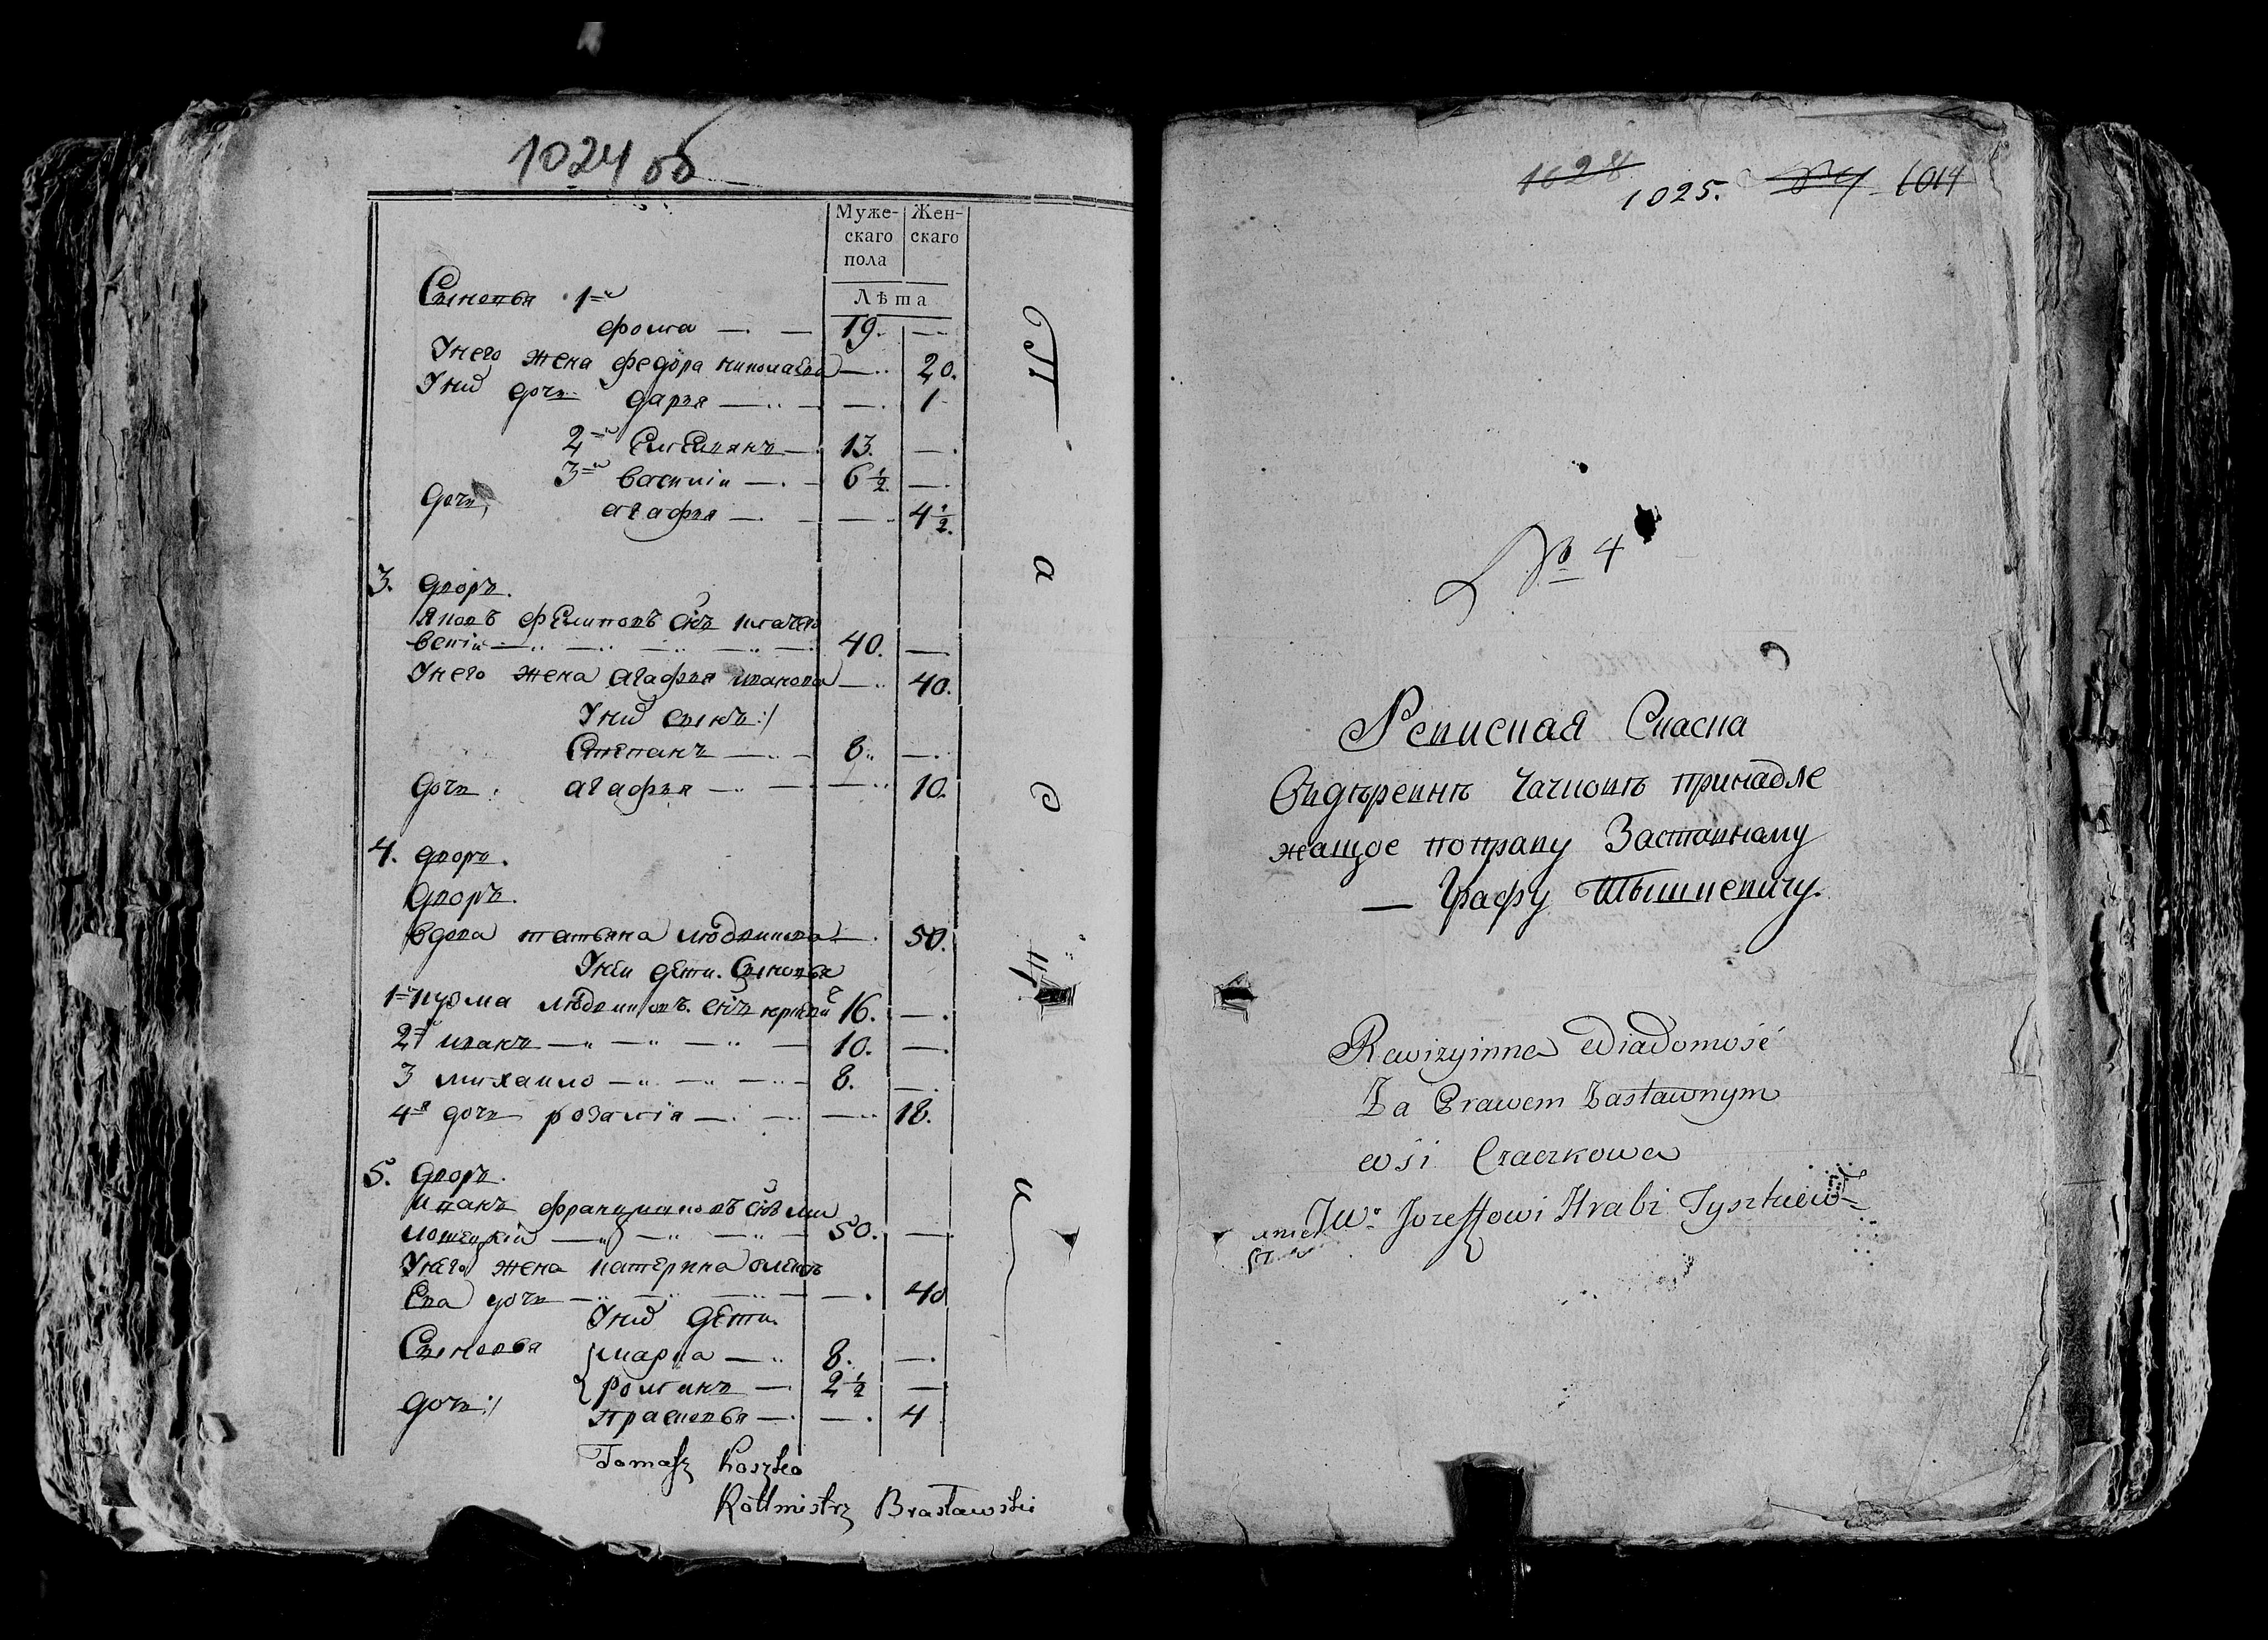 1024 об
Муже- Жен-
скаго скаго
пола
Лѣта
Сыновья 1=й
фома — 19. —
Унего жена федора николаева — 20.
Уних дочь дарья — — 1
2=й Емельянъ — 13. —
3=й василій — 6 ½ —
дочь агафья — — 4 ½
3. дворъ.
Яковъ филиповъ снъ
40. —
Унего жена агафья иванова — 40.
Уних сынъ:/
Степанъ — 8 —
дочь: агафья — — 10.
4. дворъ.
дворъ.
вдова татьяна — 50.
Унеи дети. Сыновья
1=й кузма снъ 16. —
2=й иванъ — 10. —
3 михаило — 8. —
4=я дочь розалія — — 18.
5. дворъ.
Иванъ францишковъ снъ ми
50. —
Унего жена катерина
Ева дочь — — 40
Уних дети.
Сыновья марка — 8. —
романъ — 2 ½ —
дочь:/ прасковья — — 4
Tomasz Koszko
Rottmistrz Brasławski
С П
а
с
к
и
1028 1025. 1014
№ 4
Ревисная Сказка
Одѣревнѣ Чачковѣ принадле
жащое поправу Заставному
— Графу Тышкевичу.
Rewizyinna Wiadomość
Za Prawem Zastawnym
wsi Czaczkowa
JW: Jozeffowi Hrabi Tyszkiew=